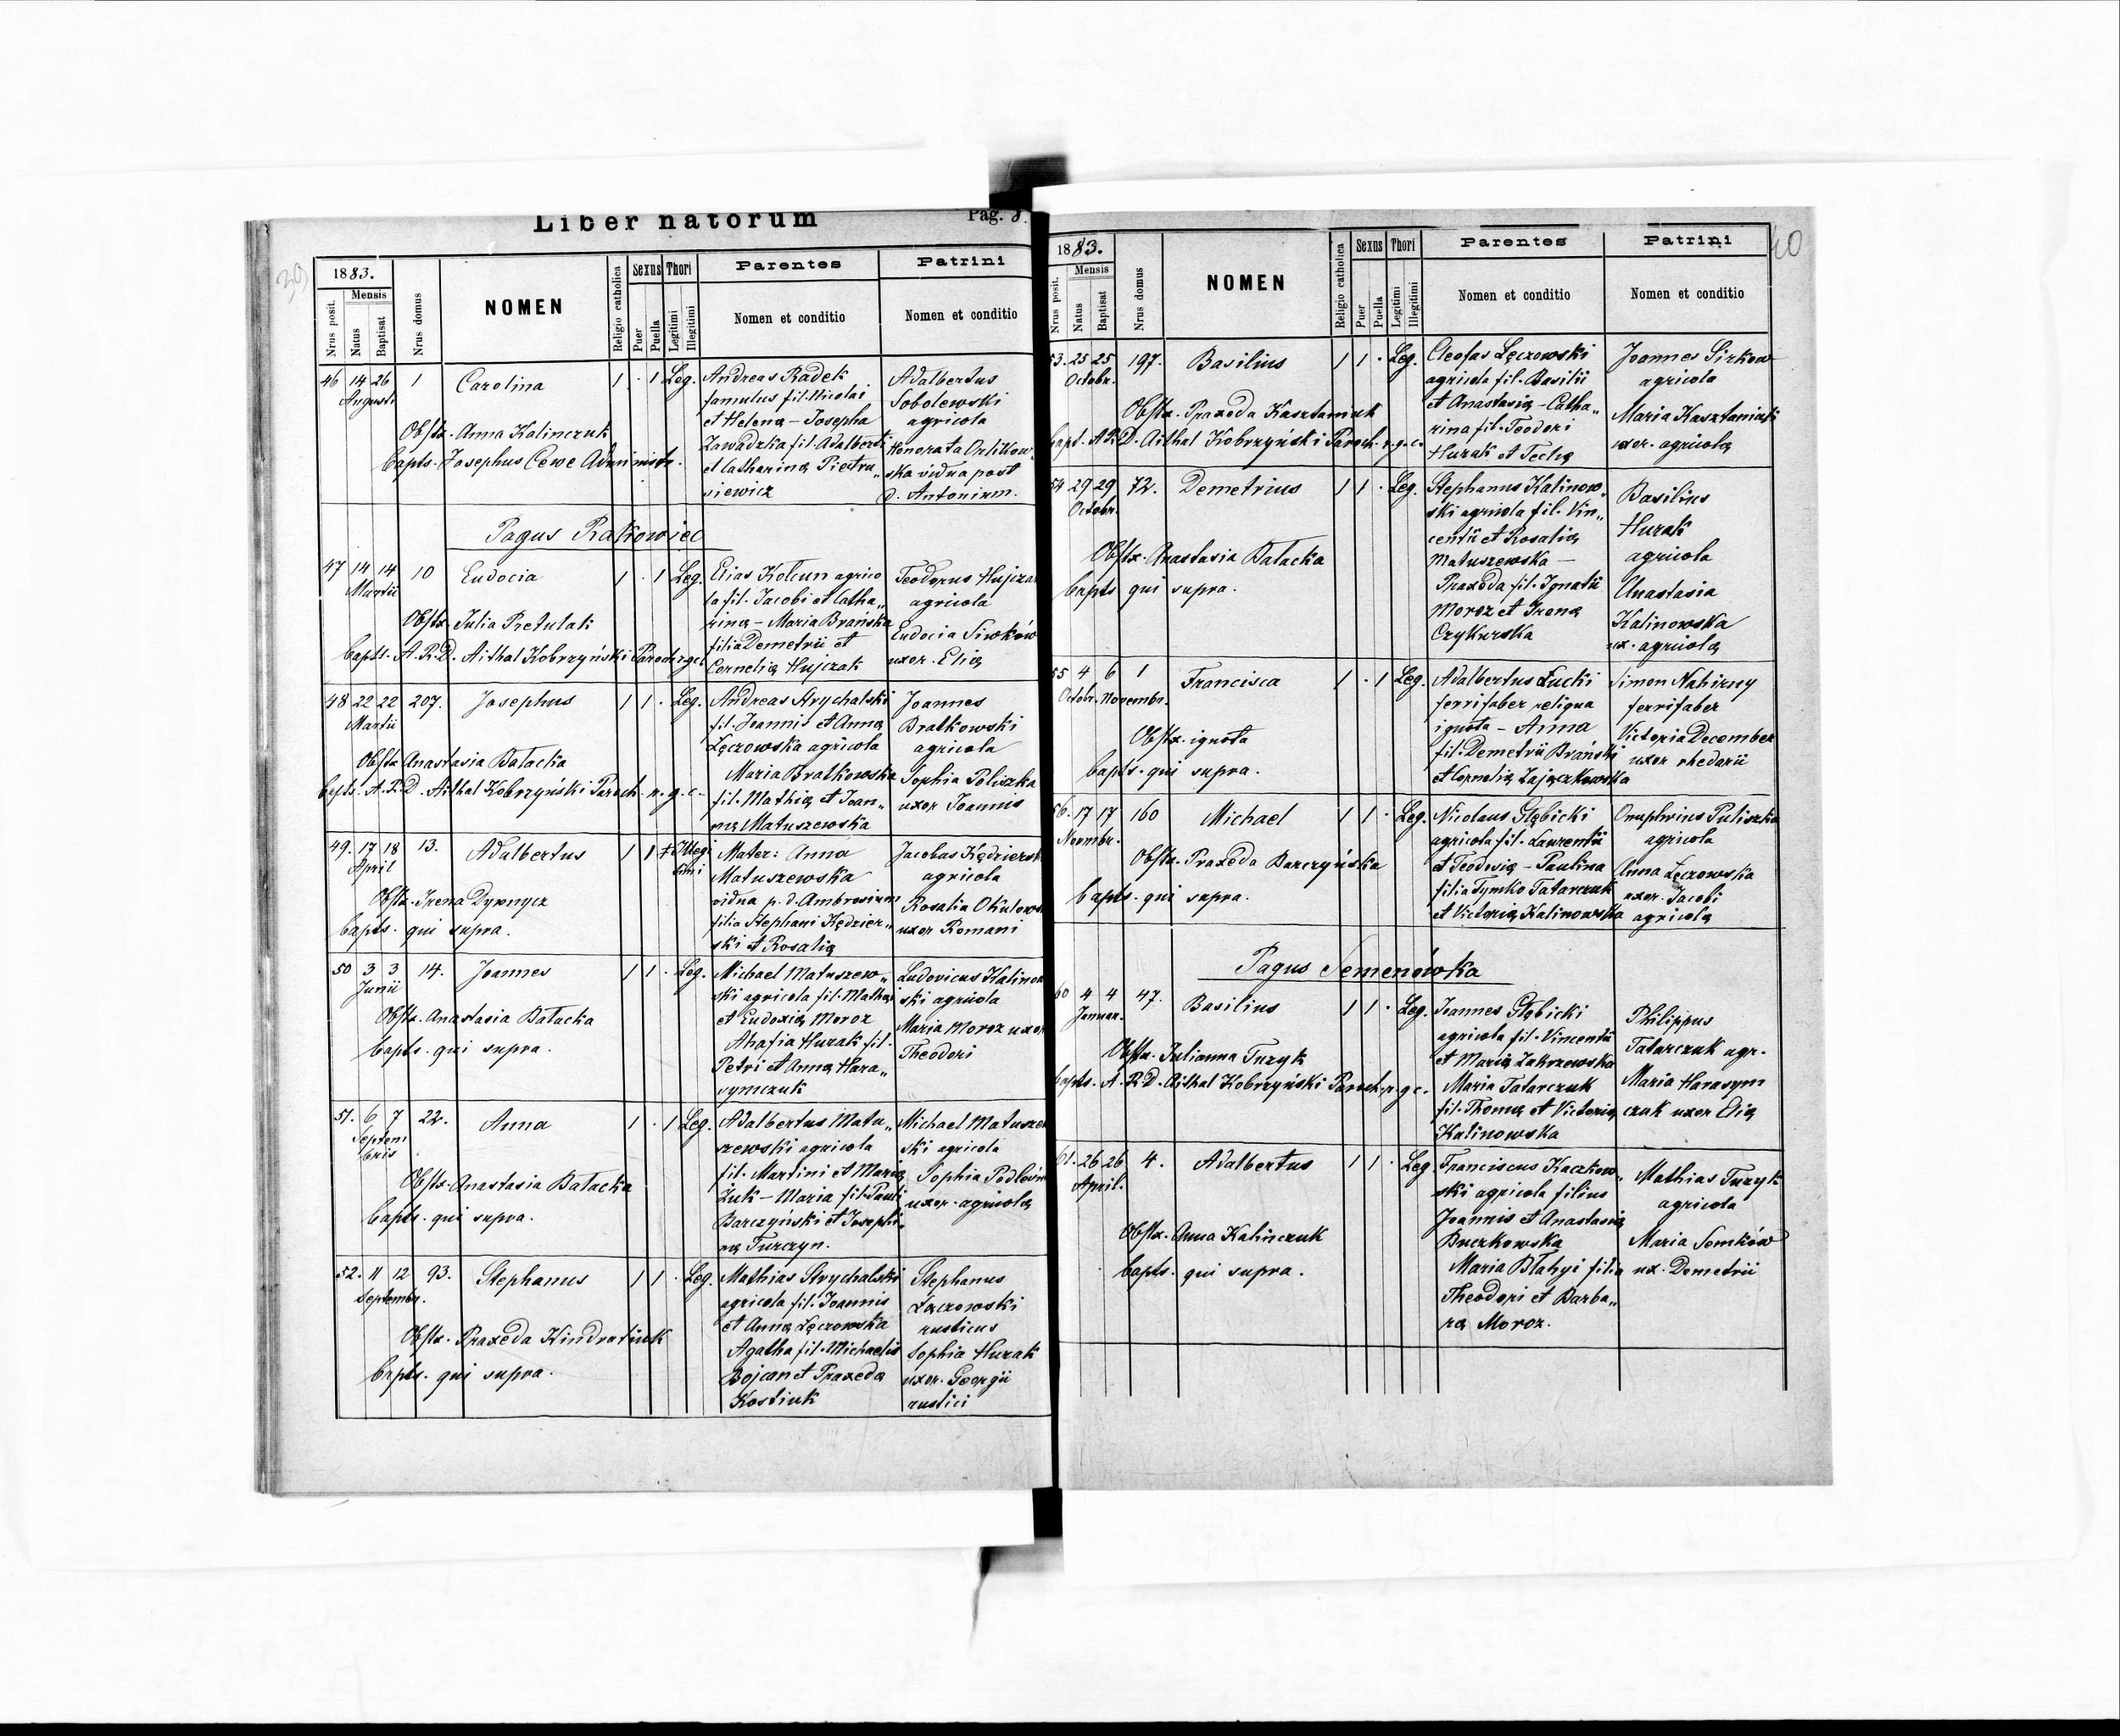 Liber natorum
Pag. 8.
39
1883.
Nrus posit.
Mensis
Natus
Baptisat
Nrus domus
NOMEN
Religio catholica
Sexus
Puer
Puella
Thori
Legitimi
Illegitimi
Parentes
Nomen et conditio
Patrini
Nomen et conditio
46 14 26 1 Carolina 1 . 1 Leg.
Augusti
Obstx. Anna Kalinczuk
bapts. Josephus Cewe Administr.
Andreas Radek
famulus fil. Nicolai
et Helenę - Josepha
Zawadzka fil. Adalberti
et Catharinę Pietru„
siewicz
Adalbertus
Sobolewski
agricola
Honorata
ska vidua post
d. Antonium.
Pagus Rakowiec
47 14 14 10 Eudocia 1 . 1 Leg.
Martii
Obstx. Julia Pretulak
bapts. A. R. D. Aithal Kobrzyński Paroch r. g. c.
Elias Kolcun agrico
la fil. Jacobi et Catha„
rinę - Maria Brańska
filia Demetrii et
Cornelię Hujczak
Teodorus
agricola
Eudocia Siwków
uxor. Elię
48 22 22 207. Josephus 1 1 . Leg.
Martii
Obstx Anastasia Batacka
bapts. A. R. D. Aithal Kobrzyński Paroch. r. g. c.
Andreas Strychalski
fil. Joannis et Annę
Lęczowska agricola
Maria Bratkowska
fil. Mathię et Joan„
nę Matuszewska
Joannes
Bratkowski
agricola
Sophia Poliszka
uxor Joannis
49. 17 18 13. Adalbertus 1 1 Illegi
April timi
Obstx. Irena Dywnycz
bapts. qui supra.
Mater: Anna
Matuszewska
vidua p. d. Ambrosium
filia Stephani Kędzier„
ski et Rosalię
Jacobus
agricola
Rosalia
uxor Romani
50 3 3 14. Joannes 1 1 . Leg.
Junii
Obstx. Anastasia Batacka
bapts. qui supra.
Michael Matuszew„
ski agricola fil. Mathei
et Eudoxię Moroz
Ahafia Huzak fil.
Petri et Annę Hara„
symczuk
Ludovicus
ski agricola
Maria Moroz uxor
Theodori
51. 6 7 22. Anna 1 . 1 Leg.
Septem
bris
Obstx. Anastasia Batacka
bapts. qui supra.
Adalbertus Matu„
szewski agricola
fil. Martini et Marię
Żuk - Maria fil. Pauli
Barczyński et Josephi„
nę Turczyn.
Michael
ski agricola
Sophia
uxor. agricolę
52. 11 12 93. Stephanus 1 1 . Leg.
Septembr.
Obstx. Praxeda Kindratiuk
bapts. qui supra.
Mathias Strychalski
agricola fil. Joannis
et Annę Lęczowska
Agatha fil. Michaelis
Bojcan et Praxeda
Kostiuk
Stephanus
Lęczowski
rusticus
Sophia Huzak
uxor. Georgii
rustici
40
1883.
Nrus posit.
Mensis
Natus
Baptisat
Nrus domus
NOMEN
Religio catholica
Sexus
Puer
Puella
Thori
Legitimi
Illegitimi
Parentes
Nomen et conditio
Patrini
Nomen et conditio
53. 25 25 197. Basilius 1 1 . Leg.
Octobr.
Obstx. Praxeda Kasztaniuk
bapt. A R. D. Aithal Kobrzyński Paroch. r. g. c.
Cleofas Lęczowski
agricola fil. Basilii
et Anastasię - Catha„
rina fil. Teodori
Huzak et Teclę
Joannes Sirkow
agricola
Maria
uxor. agricolę
54 29 29 72. Demetrius 1 1 . Leg.
Octobr.
Obstx. Anastasia Batacka
bapts qui supra.
Stephanus Kalinow„
ski agricola fil. Vin„
centii et Rosalię
Matuszewska -
Praxeda fil. Ignatii
Moroz et Irenę
Czykurska
Basilius
Huzak
agricola
Anastasia
Kalinowska
ux. agricolę
55 4 6 1 Francisca 1 . 1 Leg.
Octobr. Novembr.
Obstx. ignota
bapts. qui supra.
Adalbertus Łucki
ferrifaber reliqua
ignota - Anna
fil. Demetrii Brański
et Cornelię Zajączkowska
Simon Nahirny
ferrifaber
Victoria December
uxor rhedarii
56. 17 17 160 Michael 1 1 . Leg.
Novmbr.
Obstx. Praxeda Barczyńska
bapts. qui supra.
Nicolaus Głębicki
agricola fil. Laurentii
et Teodosię - Paulina
filia Tymko Tatarczuk
et Victorię Kalinowska
Onuphrius Puliszka
agricola
Anna Lęczowska
uxor. Jacobi
agricolę
Pagus Semenówka
60 4 4 47. Basilius 1 1 . Leg.
Januar.
Obstx. Julianna Tuzyk
bapts. A. R. D. Aithal Kobrzyński Paroch. r. g. c.
Joannes Głębicki
agricola fil. Vincentii
et Marię Zakrzewska
Maria Tatarczuk
fil. Thomę et Victorię
Kalinowska
Philippus
Tatarczuk agr.
Maria Harasym
czuk uxor Elię
61. 26 26 4. Adalbertus 1 1 . Leg
April.
Obstx. Anna Kalinczuk
bapts. qui supra.
Franciscus Kaczkow„
ski agricola filius
Joannis et Anastasię
Buczkowska
Maria Błahyi filia
Theodori et Barba„
rę Moroz.
Mathias Tuzyk
agricola
Maria Semków
ux. Demetrii